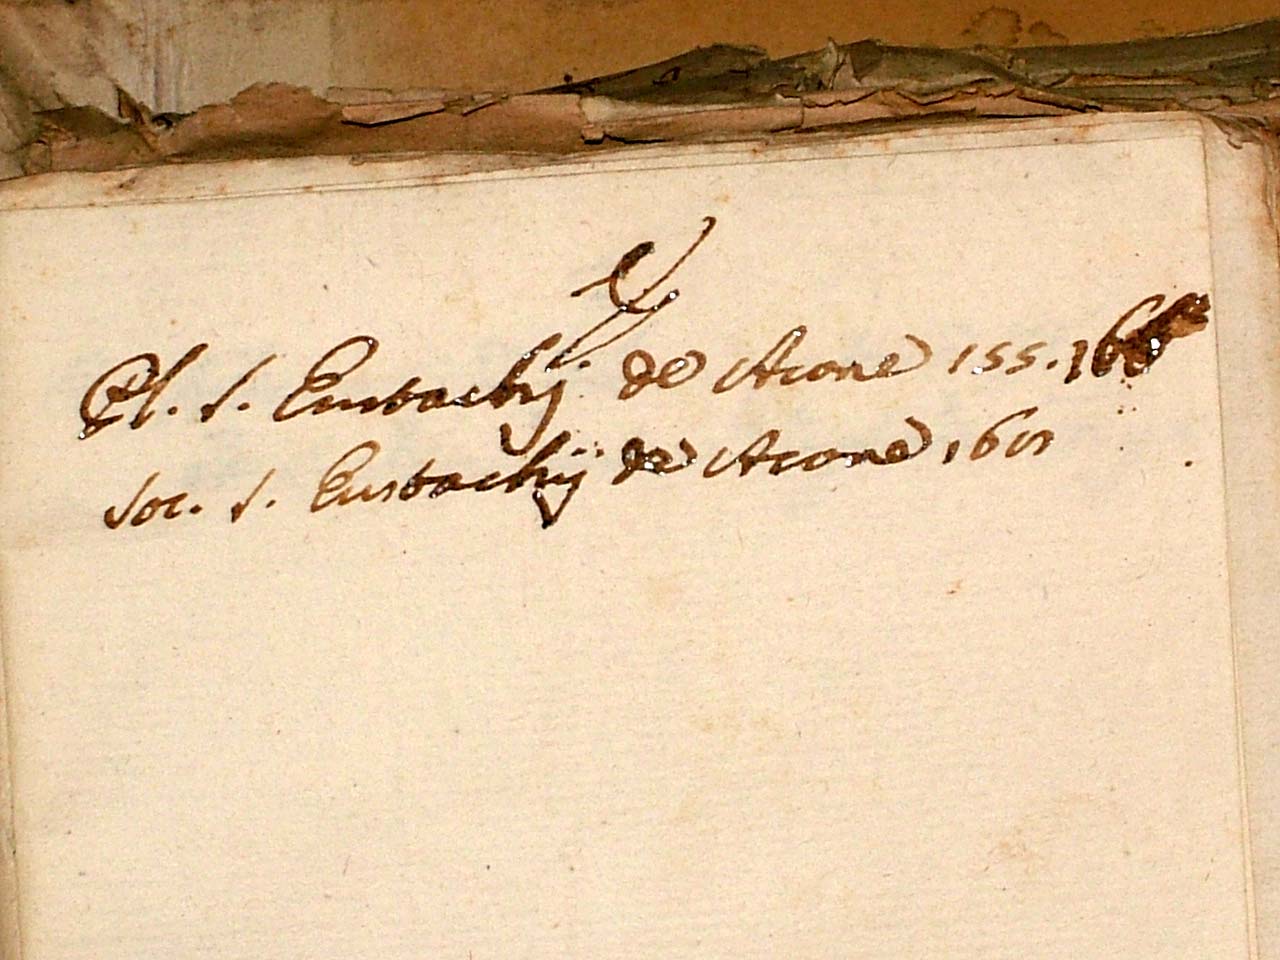 Y
Ecl. S. Eustachij de Acone 155.
Soc. S. Eustachij de Acone 160